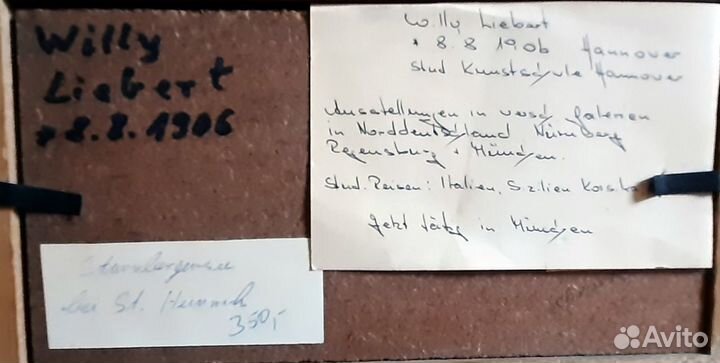 Willy
Liebert
* 8.8.1906
Willy Liebert
* 8.8 1906 Hannover
Stud Kunstschule Hannover
Ausstellungen in versch Galerien
in Norddeutschland Nürnberg
Regensburg + München.
Stud. Reisen: Italien, Sizilien Korsika
Jetzt tätig in München
bei St. Heinrich
350,-
Avito